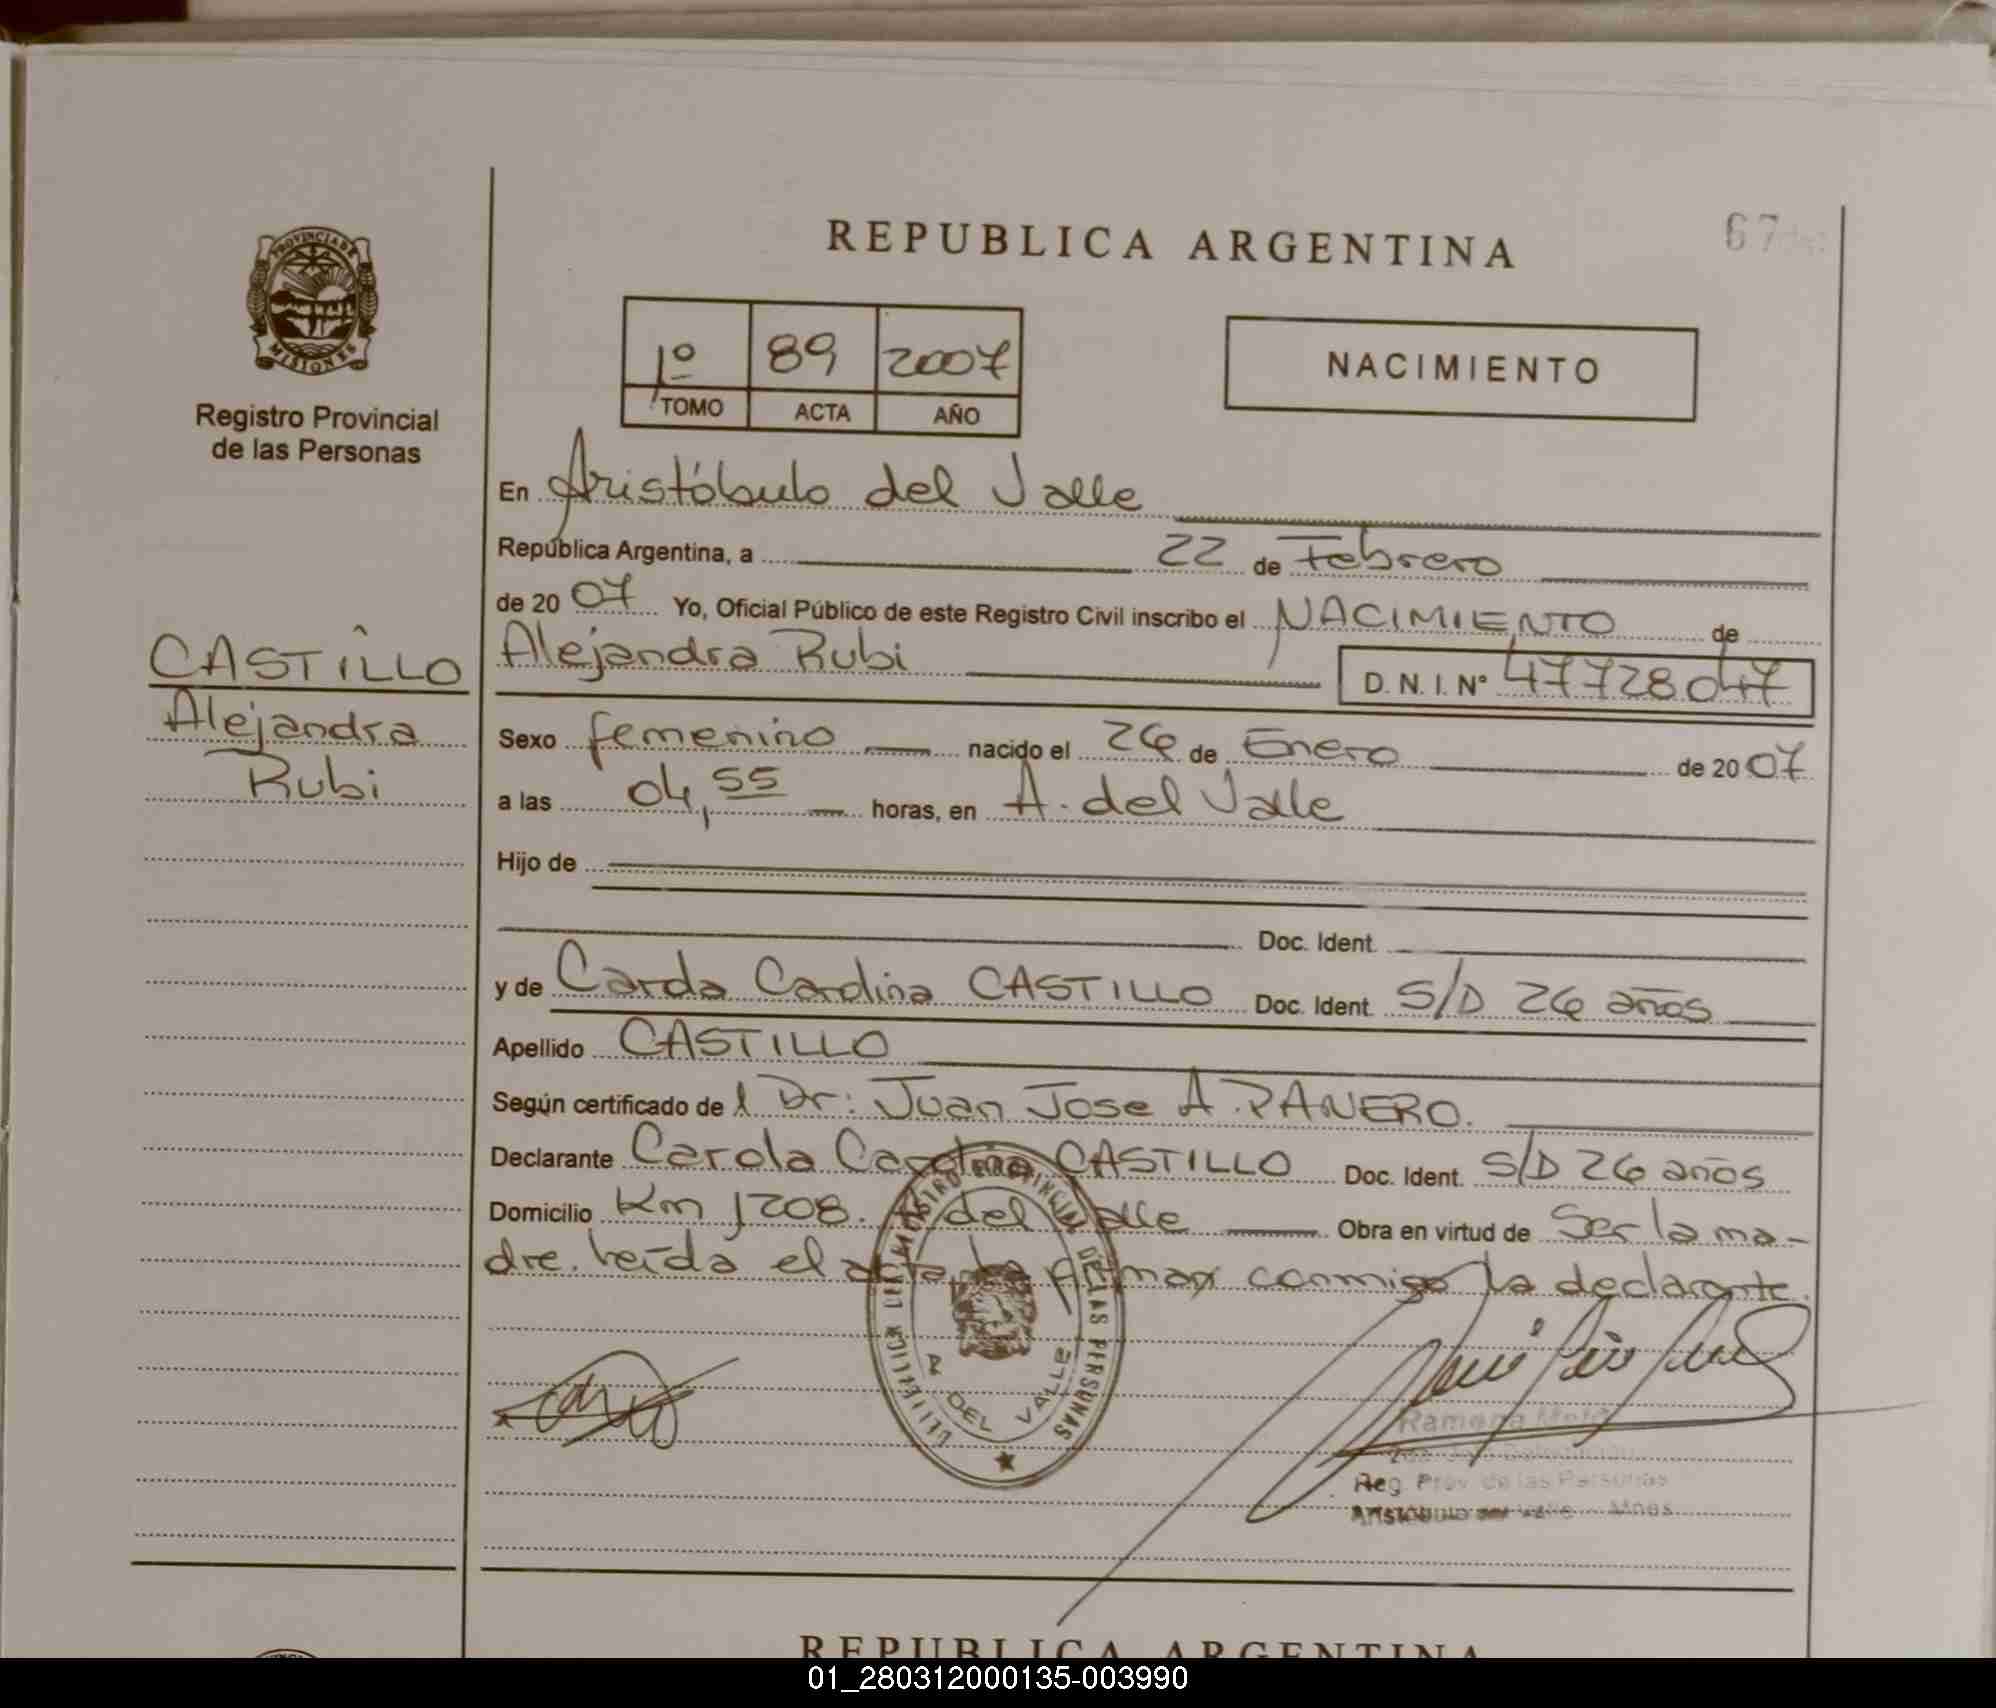 REPUBLICA ARGENTINA
67
PROVINCIA DE
MISIONES
Registro Provincial
de las Personas
1º 89 2007
TOMO ACTA AÑO
NACIMIENTO
En Aristóbulo del Valle
República Argentina, a 22 de Febrero
de 2007 Yo, Oficial Público de este Registro Civil inscribo el NACIMIENTO de
Alejandra Rubi D. N. I. Nº 47728047
CASTILLO
Alejandra
Rubi
Sexo femenino nacido el 26 de Enero de 2007
a las 04,55 horas, en A. del Valle
Hijo de
Doc. Ident.
y de Carola Carolina CASTILLO Doc. Ident. S/D 26 años
Apellido CASTILLO
Según certificado del Dr: Juan Jose A. PANERO.
Declarante Carola Carolina CASTILLO Doc. Ident. S/D 26 años
Domicilio Km 1208. A. del Valle Obra en virtud de Ser la ma-
dre. leída el acta la firman conmigo la declarante.
REGISTRO PROVINCIAL DE LAS PERSONAS
A DEL VALLE
Ramona
Reg. Prov. de las Personas
Aristóbulo del Valle - Mnes
REPUBLICA ARGENTINA
01_280312000135-003990